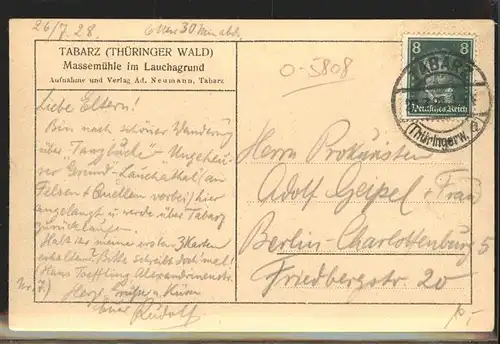 26/7. 28. 6 Uhr 30 Min abds.
TABARZ (THÜRINGER WALD)
Massemühle im Lauchagrund
Aufnahme und Verlag Ad. Neumann, Tabarz
Liebe Eltern!
Bin nach schöner Wanderung
über "Tanzbuche" -
Grund - Lauchathal (an
Felsen + Quellen vorbei) hier
angelangt u. werde über Tabarz
zurücklaufen.
Habt ihr meine ersten 3 Karten
erhalten? Bitte schreibt doch mal!
(Hans Treffling Alexandrinenstr.
Nr. 7.)
Herzl. Grüße u. Küsse
Euer Rudolf
0-5808
8 8
Deutsches Reich
TABARZ
(Thüringerw.)
Herrn Prokuristen
Adolf Geipel + Frau
Berlin-Charlottenburg 5
Friedbergstr. 20